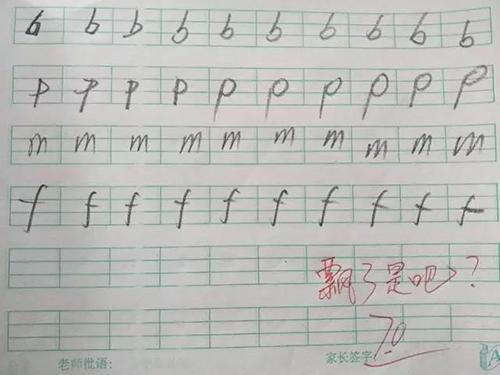 b b b b b b b b b b
p p p p p p p p p p
m m m m m m m m m m
f f f f f f f f f f
飘了是吧?
70
老师批语: 家长签字: